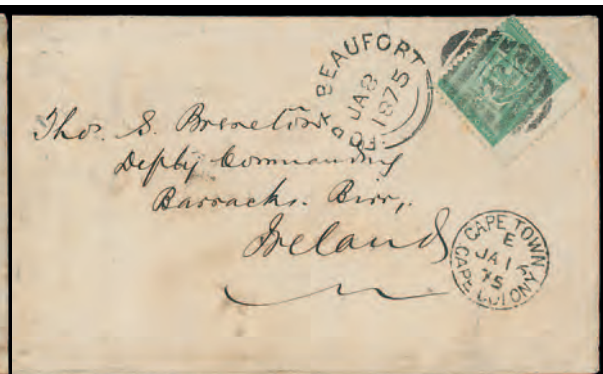 FORT BEAUFORT
JA 8
1875
Thos. S. Brereton
Depty Commanding
Barracks. Birr,
Ireland
CAPE TOWN
E
JA 12
75
CAPE COLONY